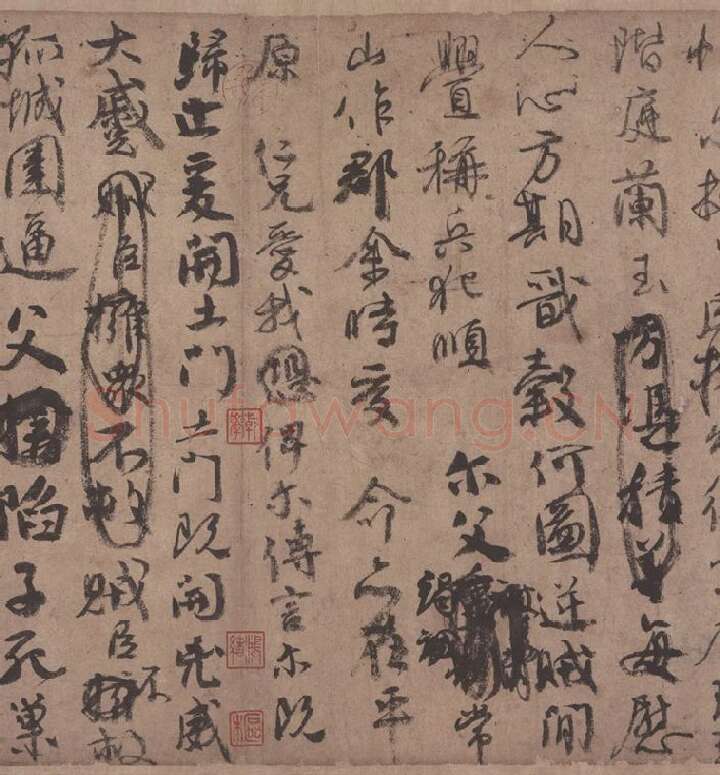 階庭蘭玉方憑積善每慰
人心方期戩穀何圖逆賊間
釁稱兵犯順 尓父竭誠常
山作郡余時受命亦在平
原 仁兄愛我恐俾尓傳言尓既
歸止爰開土門土門既開凶威
大蹙賊臣擁衆不救賊臣不救
孤城圍逼父陷子死巢
shufawang.CN